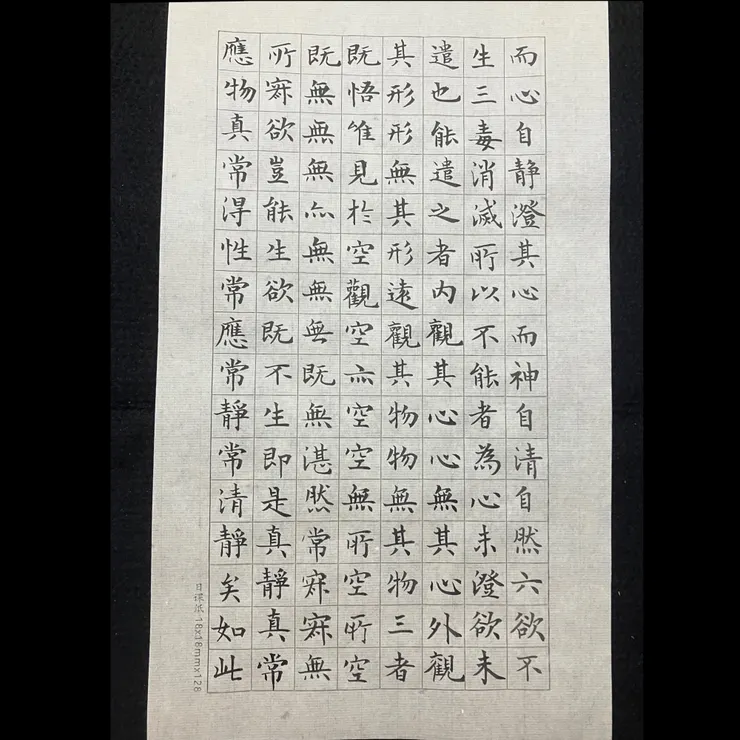 而心自静澄其心而神自清自然六欲不
生三毒消滅所以不能者為心未澄欲未
遣也能遣之者内觀其心心無其心外觀
其形形無其形遠觀其物物無其物三者
既悟唯見於空觀空亦空空無所空所空
既無無無亦無無無既無湛然常寂寂無
所寂欲豈能生欲既不生即是真静真常
應物真常得性常應常静常清静矣如此
日课纸18x18mmx128